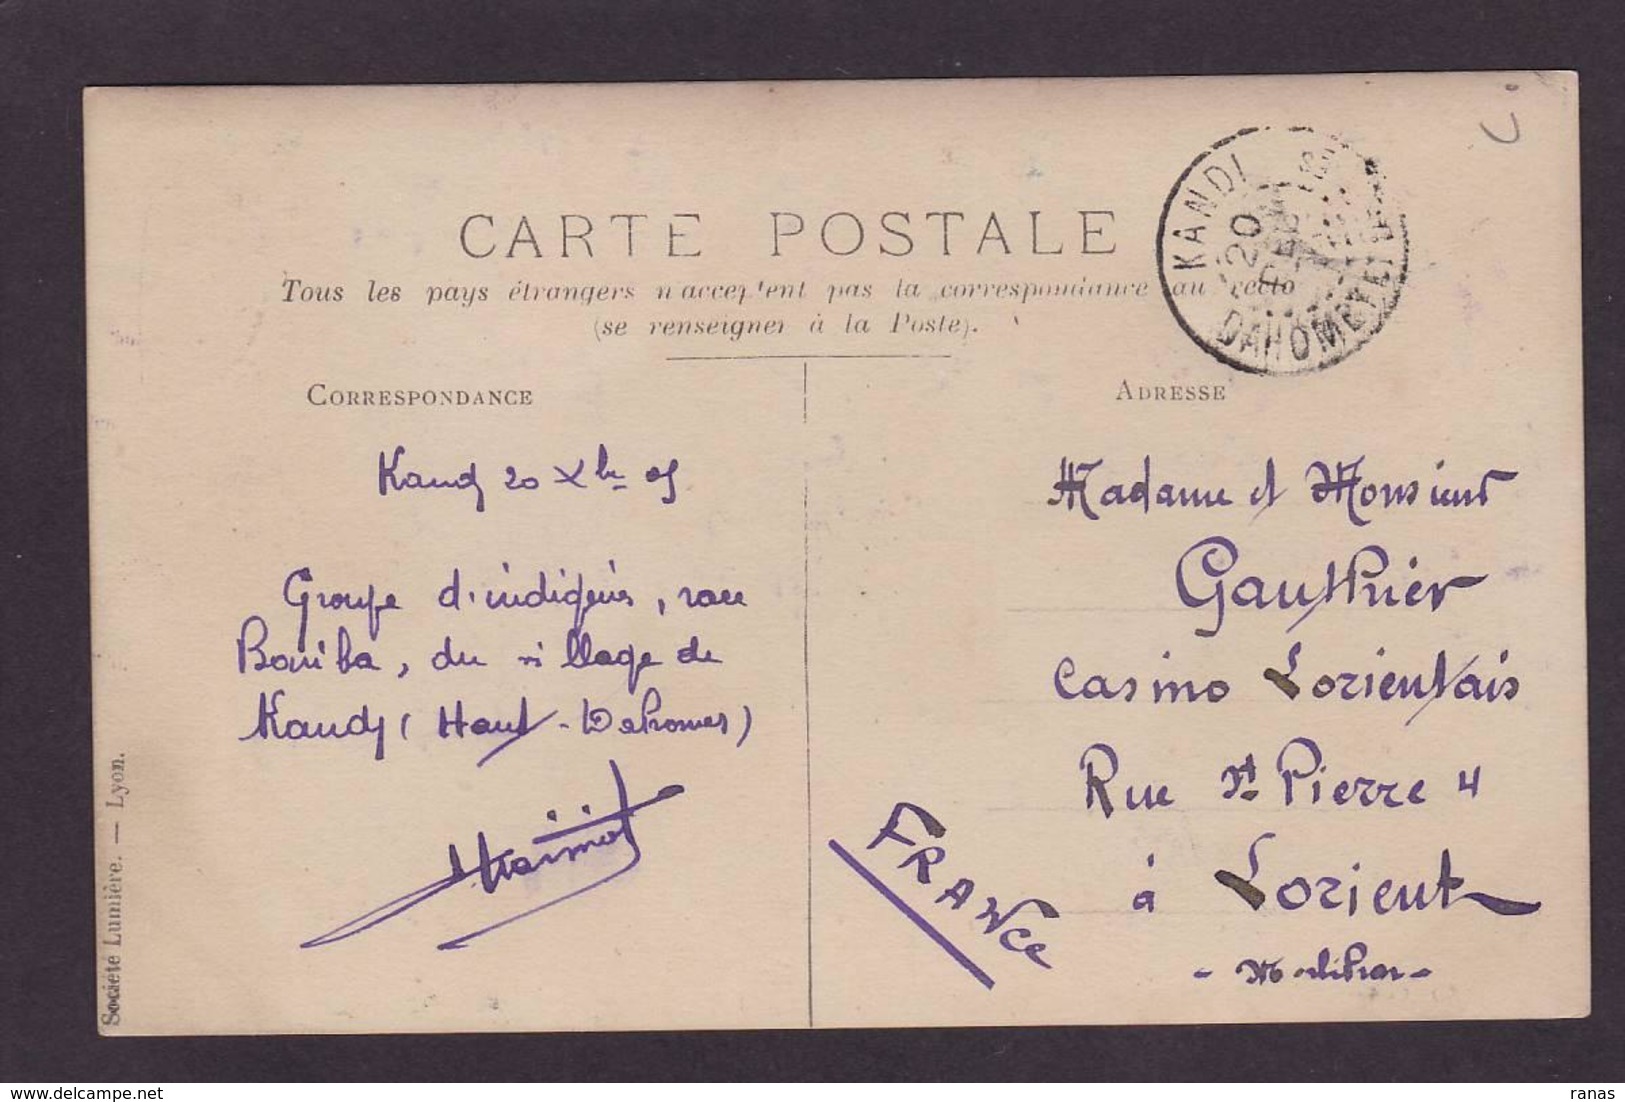 CARTE POSTALE
Tous les pays étrangers n'acceptent pas la correspondance au recto
(se renseigner à la Poste).
KANDI
20
DAHOMEY ET DEP
CORRESPONDANCE
ADRESSE
Kandy 20 Xbre 05
Groupe d'indigènes, race
Bariba, du village de
Kandy (Haut-Dahomey)
Madame et Monsieur
Gauthier
Casino Lorientais
Rue St Pierre 4
à Lorient
- Morbihan -
FRANCE
Société Lumière. — Lyon.
delcampe.net
ranas